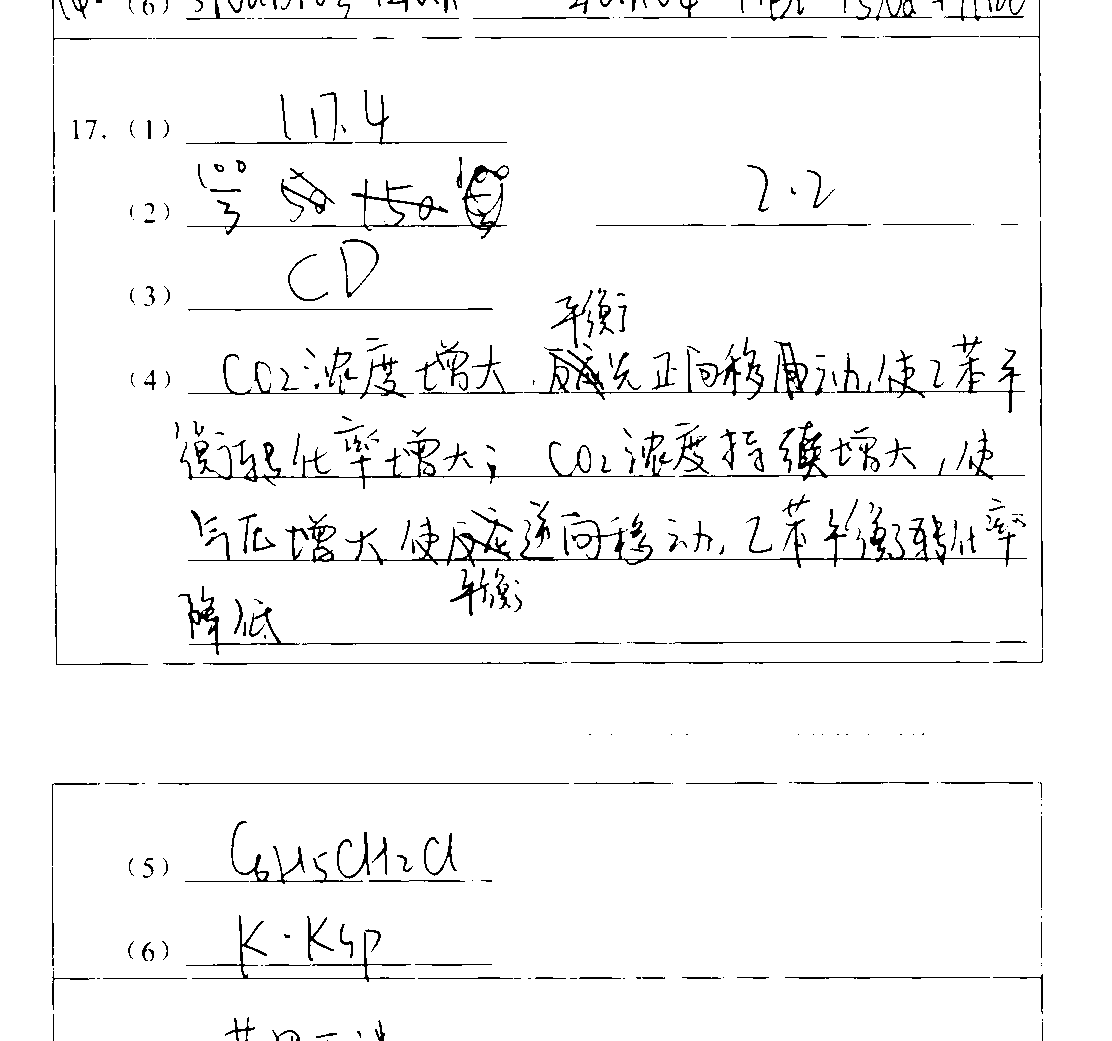 17. (1) 117.4
(2) 100/3 2.2
(3) CD
平衡
(4) CO2浓度增大,先正向移动,使乙苯平
衡转化率增大; CO2浓度持续增大,使
气压增大使逆向移动,乙苯平衡转化率
平衡
降低
(5) C6H5CH2Cl
(6) K·Ksp